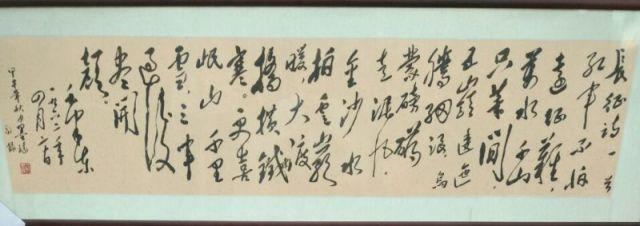 長征詩一首
紅軍不怕
遠征難
萬水千山
只等閒
五嶺逶迤
騰細浪烏
蒙磅礴
走泥丸
金沙水
拍雲崖
暖大渡
橋橫鐵索
寒更喜
岷山千里
雪三軍
過後
盡開
顏
毛澤東
一九六二年
四月廿日
甲午年秋月